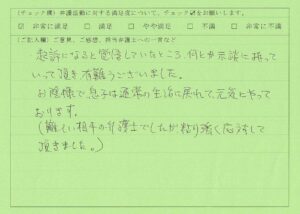 (チェック欄)弁護活動に対する満足度について、チェック☑をお願いします。
☑ 非常に満足 □ 満足 □ やや満足 □ 不満 □ 非常に不満
(ご記入欄)ご意見、ご感想、担当弁護士への一言など
起訴になると覚悟していたところ、何とか示談に持って
いって頂き有難うございました。
お陰様で息子は通常の生活に戻れて、元気にやって
おります。
(難しい相手の弁護士でしたが粘り強く応対して
頂きました。)